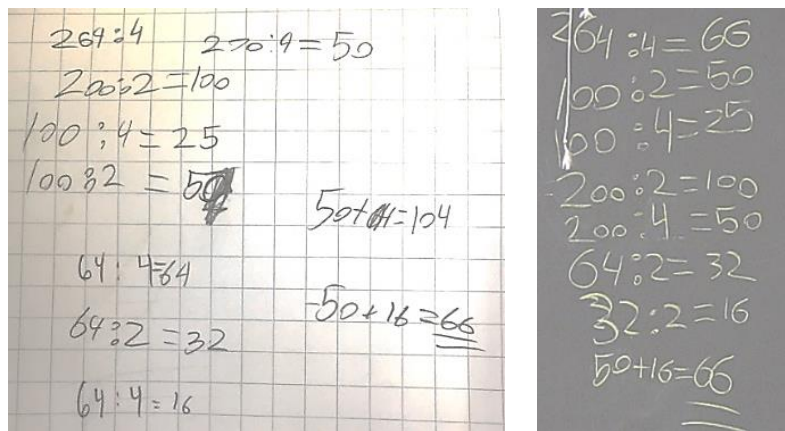 264:4
200:4=50
200:2=100
100:4=25
100:2=50
50+64=104
64:4=64
64:2=32
-50+16=66
64:4=16
264:4=66
100:2=50
100:4=25
200:2=100
200:4=50
64:2=32
32:2=16
50+16=66